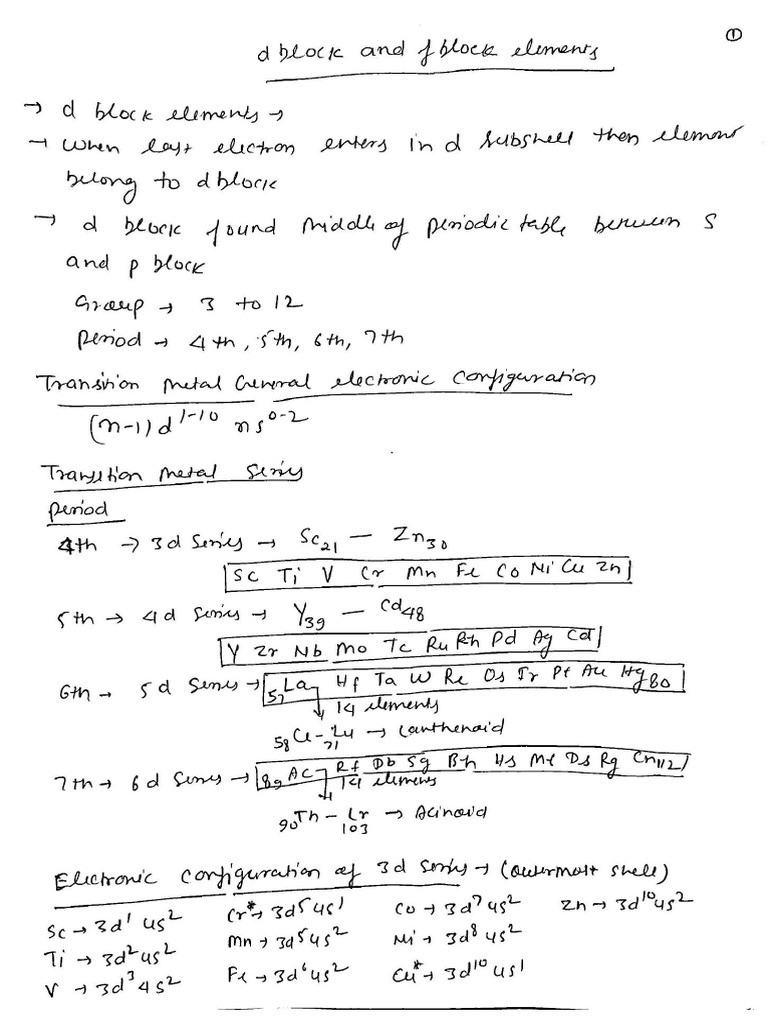 ①
d block and f block elements
→ d block elements →
→ When last electron enters in d subshell then element
belong to d block
→ d block found middle of periodic table between s
and p block
Group → 3 to 12
Period → 4th, 5th, 6th, 7th
Transition Metal General electronic configuration
(n-1)d¹⁻¹⁰ ns⁰⁻²
Transition Metal Series
Period
4th → 3d Series → Sc₂₁ — Zn₃₀
Sc Ti V Cr Mn Fe Co Ni Cu Zn
5th → 4d Series → Y₃₉ — Cd₄₈
Y Zr Nb Mo Tc Ru Rh Pd Ag Cd
6th → 5d Series → ₅₇La Hf Ta W Re Os Ir Pt Au Hg₈₀
14 elements
₅₈Ce - ₇₁Lu → Lanthenoid
7th → 6d Series → ₈₉Ac Rf Db Sg Bh Hs Mt Ds Rg Cn₁₁₂
14 elements
₉₀Th - Lr₁₀₃ → Acinoid
Electronic configuration of 3d series → (outermost shell)
Sc → 3d¹ 4s² Cr* → 3d⁵ 4s¹ Co → 3d⁷ 4s² Zn → 3d¹⁰ 4s²
Ti → 3d² 4s² Mn → 3d⁵ 4s² Ni → 3d⁸ 4s²
V → 3d³ 4s² Fe → 3d⁶ 4s² Cu* → 3d¹⁰ 4s¹